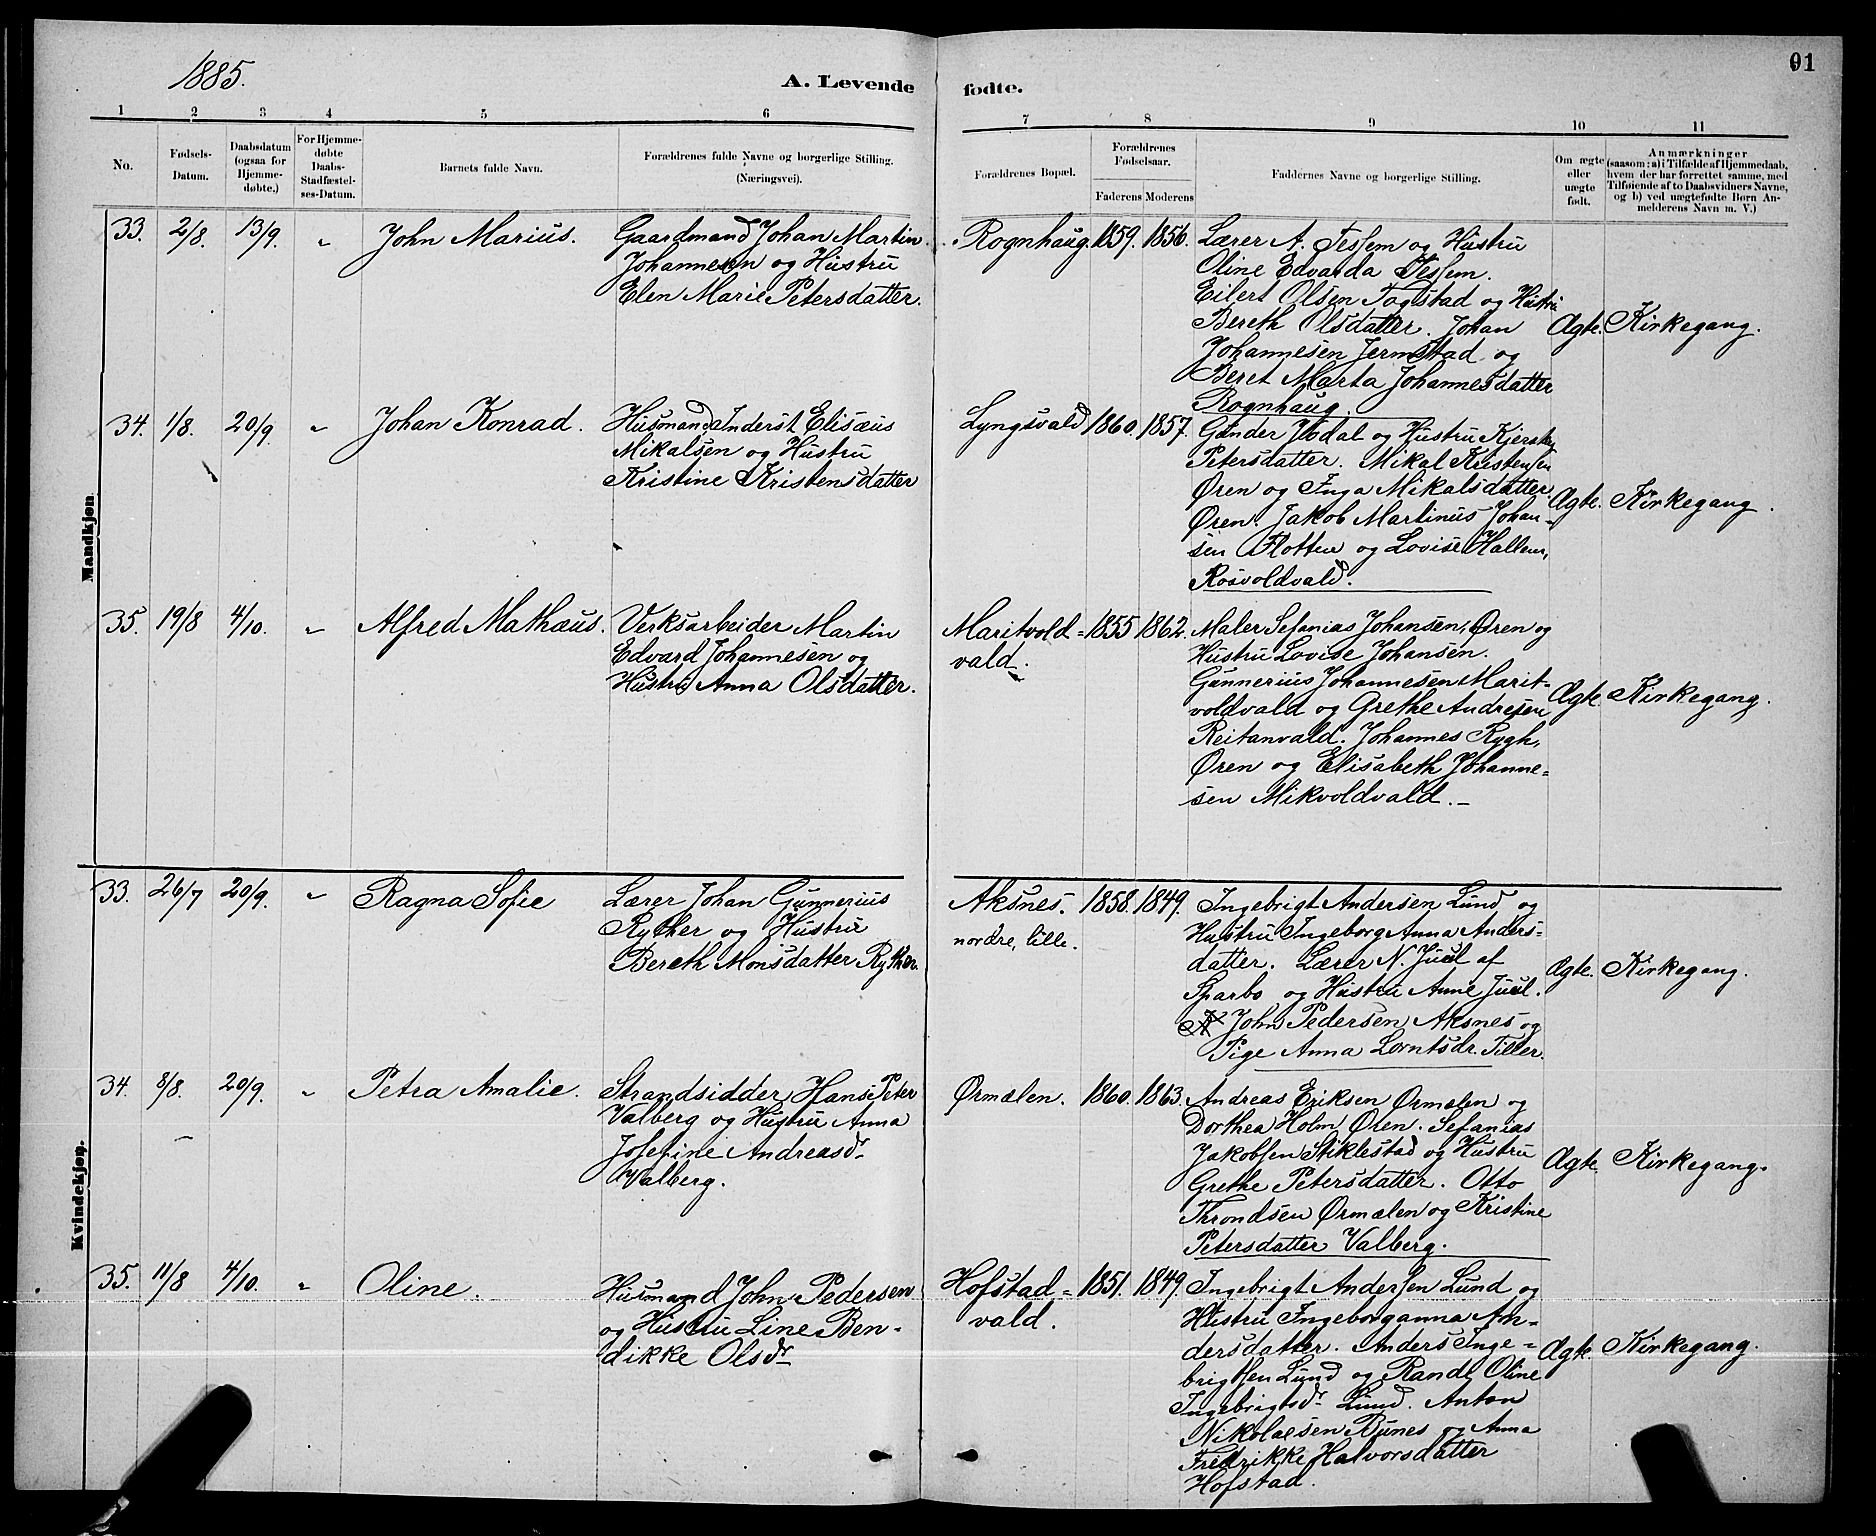 1885.
A. Levende
fødte.
91
1 2 3 4 5 6 7 8 9 10 11
No.
Fødsels-
Datum.
Daabsdatum
(ogsaa for
Hjemme-
døbte.)
For Hjemme-
døbte
Daabs-
Stadfæstel-
ses-Datum.
Barnets fulde Navn.
Forældrenes fulde Navne og borgerlige Stilling.
(Næringsvei).
Forældrenes Bopæl.
Forældrenes
Fødselsaar.
Faderens Moderens
Faddernes Navne og borgerlige Stilling.
Om ægte
eller
uægte
født.
Anmærkninger
(saasom: a) i Tilfælde af Hjemmedaab,
hvem der har forrettet samme, med
Tilføiende af to Daabsvidners Navne,
og b) ved uægtefødte Børn An-
melderens Navn m. V.)
Mandkjøn
33. 2/8. 13/9. " John Marius.
Gaardmand Johan Martin
Johannesen og Hustru
Elen Marie Petersdatter.
Rognhaug. 1859. 1856.
Lærer A. Tessem og Hustru
Oline Edvarda Tessem.
Eilert Olsen Togstad og Hustru
Bereth Olsdatter. Johan
Johannesen Jermstad og
Beret Marta Johannesdatter
Rognhaug.
Ægte. Kirkegang.
34. 1/8. 20/9. " Johan Konrad.
Husmand, Inderst Elisæus
Mikalsen og Hustru
Kristine Kristensdatter
Lyngsvald 1860. 1857.
Gunder Ydal og Hustru
Petersdatter. Mikal Kristensen
Øren og Inga Mikalsdatter
Øren. Jakob Martinus Johan-
sen Flotten og Lovise Hallem,
Rosvoldvald.
Ægte. Kirkegang.
35. 19/8 4/10. " Alfred Mathæus.
Verksarbeider Martin
Edvard Johannesen og
Hustru Anna Olsdatter.
Maritvold=
vald.
1855 1862.
Maler Sefanias Johansen, Øren og
Hustru Lovise Johansen.
Gunnerius Johannesen Marit=
voldvald og Grethe Andresen
Reitanvald. Johannes Rygh,
Øren og Elisabeth Johanne=
sen Mikvoldvald.
Ægte. Kirkegang.
Kvindekjøn.
33. 26/7 20/9. " Ragna Sofie
Lærer Johan Gunnerius
Ryther og Hustru
Bereth Monsdatter Ryther.
Aksnes.
nordre, lille.
1858. 1849.
Ingebrigt Andersen Lund og
Hustru Ingeborg Anna Anders=
datter. Lærer N. Juul af
Sparbo og Hustru Anne Juul.
John Pedersen Aksnes og
Pige Anna Lorntsdr. Tiller.
Ægte. Kirkegang.
34. 8/8. 20/9. " Petra Amalie.
Strandsidder Hans Peter
Valberg og Hustru Anna
Josefine Andreasdr
Valberg.
Ørmælen. 1860. 1863.
Andreas Eriksen Ørmælen og
Dorthea Holm Øren. Sefanias
Jakobsen Stiklestad og Hustru
Grethe Petersdatter. Otto
Throndsen Ørmælen og Kristine
Petersdatter Valberg.
Ægte. Kirkegang.
35. 11/8 4/10. " Oline.
Husmand John Pedersen
og Hustru Line Ben=
dikke Olsdr
Hofstad=
vald.
1851. 1849.
Ingebrigt Andersen Lund og
Hustru Ingeborganna An=
dersdatter. Anders Inge=
brigtsen Lund og Randi Oline
Ingebrigtsdr Lund. Anton
Nikolaesen Bunes og Anna
Fredrikke Halvorsdatter
Hofstad.
Ægte. Kirkegang.